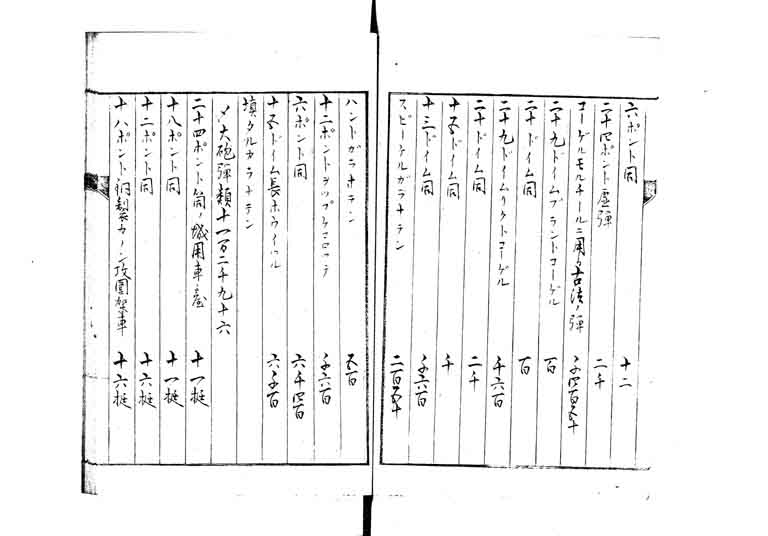 六ポント同 十二
二十四ポント虚弾 二千
コーゲルモルチールニ用ル古法ノ弾 千四百五十
二十九ドイムブラントコーゲル 百
二十ドイム同 百
二十九ドイムリクトコーゲル 千六百
二十ドイム同 二千
十五ドイム同 千
十三ドイム同 千六百
スピーゲルガラナテン 二百五十
ハントガラナテン 五百
十二ポント 千六百
六ポント同 六千四百
十五ドイム長ホウイツル 六千百
填タルガラナテン
〆大砲弾類十一万二千九十六
二十四ポント筒ノ城用車台 十一挺
十八ポント同 十一挺
十二ポント同 十六挺
十八ポント銅製カノン攻圍架車 十六挺